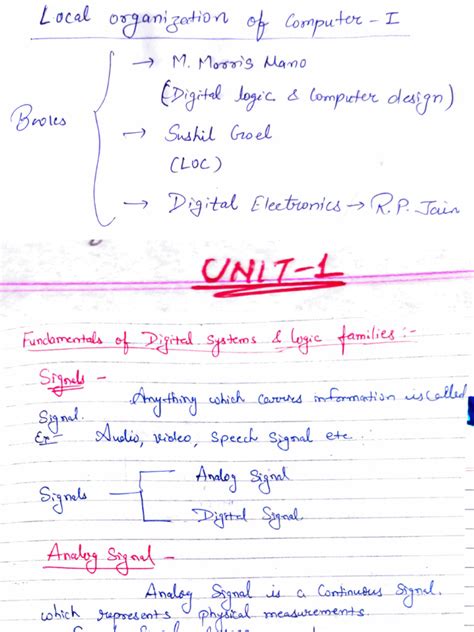 Local organization of Computer - I
→ M. Morris Mano
(Digital logic & Computer design)
Books
→ Sushil Goel
(LOC)
→ Digital Electronics → R.P. Jain
UNIT-1
Fundamentals of Digital Systems & Logic families :-
Signals -
Anything which carries information is called
Signal.
Ex- Audio, video, Speech Signal etc.
Analog Signal
Signals
Digital Signal
Analog Signal -
Analog Signal is a Continuous Signal.
which represents physical measurements.